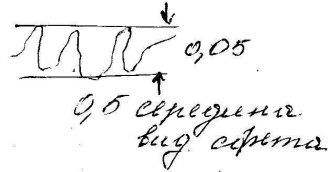 0,05
0,5 середина
вид. света